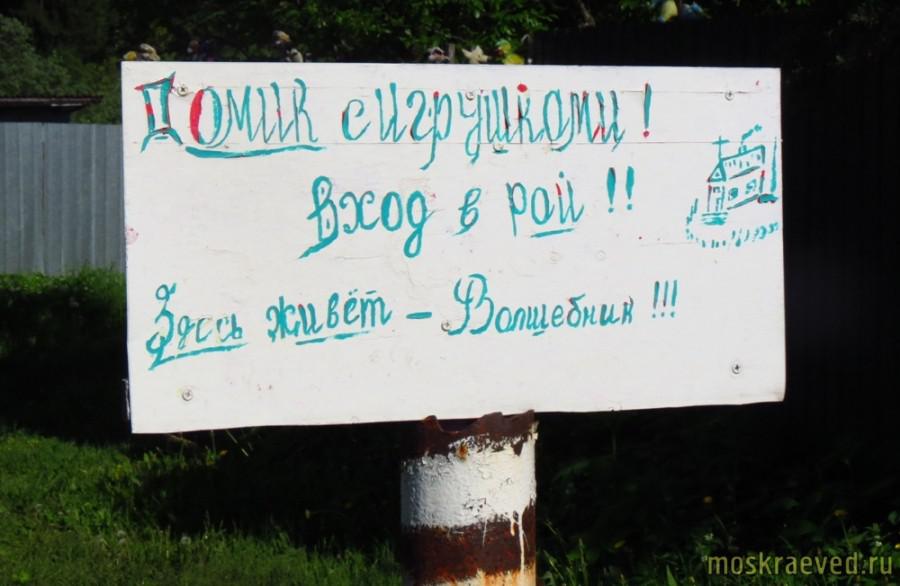 Домик с игрушками!
Вход в рай!!
Здесь живёт - Волшебник!!!
moskraeved.ru